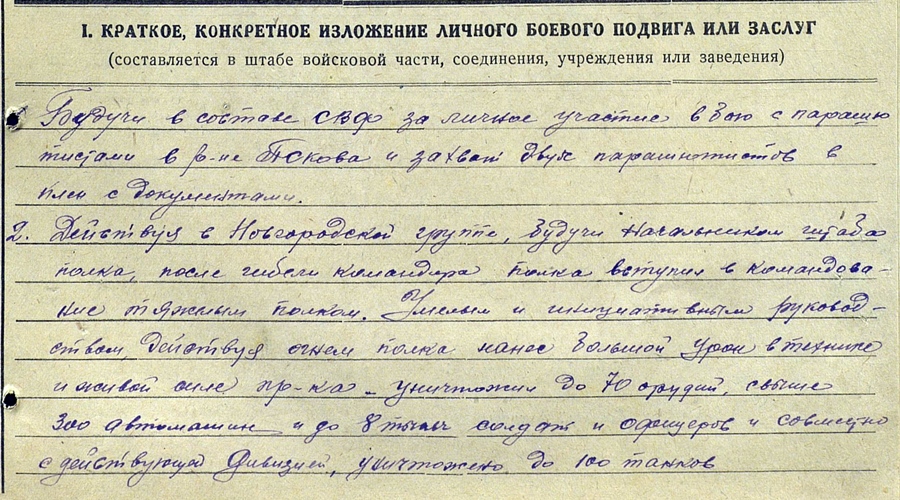 I. КРАТКОЕ, КОНКРЕТНОЕ ИЗЛОЖЕНИЕ ЛИЧНОГО БОЕВОГО ПОДВИГА ИЛИ ЗАСЛУГ
(составляется в штабе войсковой части, соединения, учреждения или заведения)
Будучи в составе СЗФ за личное участие в бою с парашю
тистами в р-не Пскова и захват двух парашютистов в
плен с документами.
2. Действуя в Новгородской группе, будучи Начальником штаба
полка, после гибели командира полка вступил в командова-
ние тяжным полком. Умелым и инициативным руковод-
ством, действуя огнем полка нанес большой урон в технике
и живой силе пр-ка - уничтожил до 70 орудий, свыше
300 автомашин и до 8 тысяч солдат и офицеров и совместно
с действующей дивизией, уничтожено до 100 танков